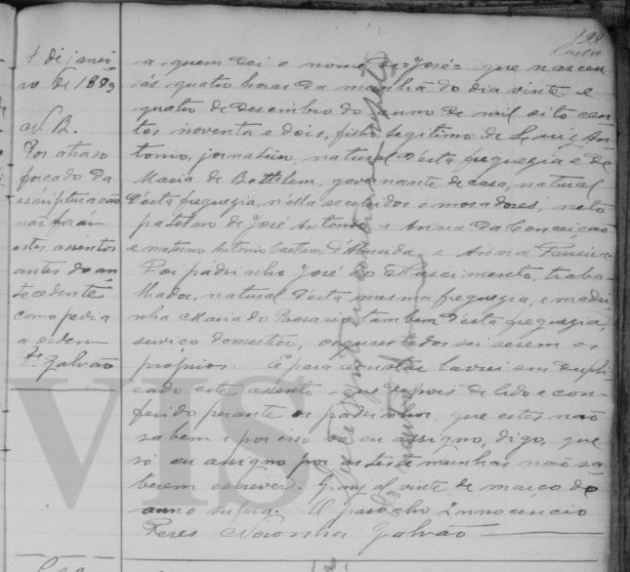 1 de janei
ro de 1893
N.B.
Por atraso
forçado da
escripturação
não foram
estes assentos
antes do an
tecedente
como pedia
a ordem
P. Galvão
a quem dei o nome de José = que nasceu
ás quatro horas da manhã do dia vinte e
quatro de desembro do anno de mil oito cen
tos noventa e dois, filho legitimo de Luiz An
tonio, jornaleiro, natural d'esta freguezia e de
Maria de Bethlem, governante de casa, natural
d'esta freguezia, n'ella recebidos e moradores; neto
paterno de José Antonio e Anna da Conceição
e materno Antonio Caetano d'Almeida, e Anna Ferreira
Foi padrinho José do Nascimento, traba
lhador, natural d'esta mesma freguezia, e madri
nha Maria do Rosario, tambem d'esta freguezia
serviço domestico, os quaes todos sei serem os
proprios. E para constar lavrei em dupli
cado este assento que depois de lido e con
ferido perante os padrinhos, que estes não
sabem e por isso só eu assigno, digo, que
só eu assigno por as testemunhas não sa
berem escrever. vinte de março do
anno supra. O parocho Innocencio
Peres Noronha Galvão
VIS